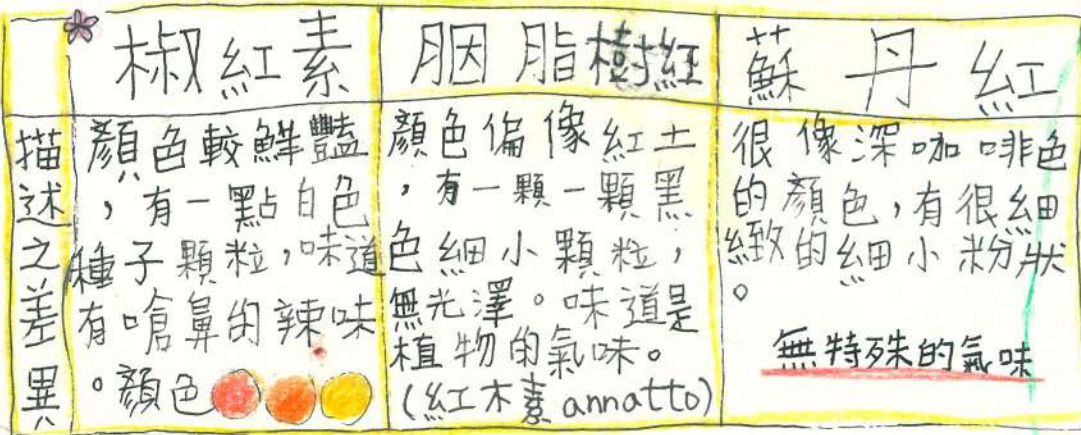 椒紅素
胭脂樹紅
蘇丹紅
描述之差異
顏色較鮮豔
，有一點白色
種子顆粒，味道
有嗆鼻的辣味
。顏色
顏色偏像紅土
，有一顆一顆黑
色細小顆粒，
無光澤。味道是
植物的氣味。
(紅木素annatto)
很像深咖啡色
的顏色，有很細
緻的細小粉狀
。
無特殊的氣味